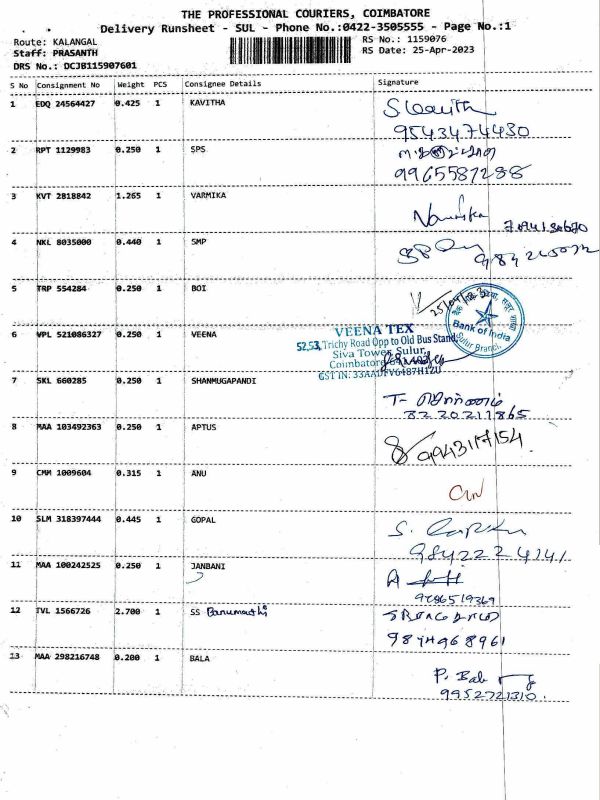 THE PROFESSIONAL COURIERS, COIMBATORE
Delivery Runsheet - SUL - Phone No.:0422-3505555 - Page No.:1
Route: KALANGAL
RS No.: 1159076
Staff: PRASANTH
RS Date: 25-Apr-2023
DRS No.: DCJB115907601
S No Consignment No Weight PCS Consignee Details Signature
1 EDQ 24564427 0.425 1 KAVITHA
9543474430
2 RPT 1129983 0.250 1 SPS
9965587288
3 KVT 2818842 1.265 1 VARMIKA
4 NKL 8035000 0.440 1 SMP
5 TRP 554284 0.250 1 BOI
25/04/23
Bank of India
Sulur Branch
6 VPL 521086327 0.250 1 VEENA
VEENA TEX
52,53, Trichy Road Opp to Old Bus Stand,
Siva Tower, Sulur,
Coimbatore
GST IN: 33AADFV6487H1ZU
7 SKL 660285 0.250 1 SHANMUGAPANDI
8220211865
8 MAA 103492363 0.250 1 APTUS
9943117154
9 CMM 1009604 0.315 1 ANU
10 SLM 318397444 0.445 1 GOPAL
9842224141
11 MAA 100242525 0.250 1 JANBANI
9786519369
12 TVL 1566726 2.700 1 SS Banumathi
13 MAA 298216748 0.200 1 BALA
P. Bala
9952721310.